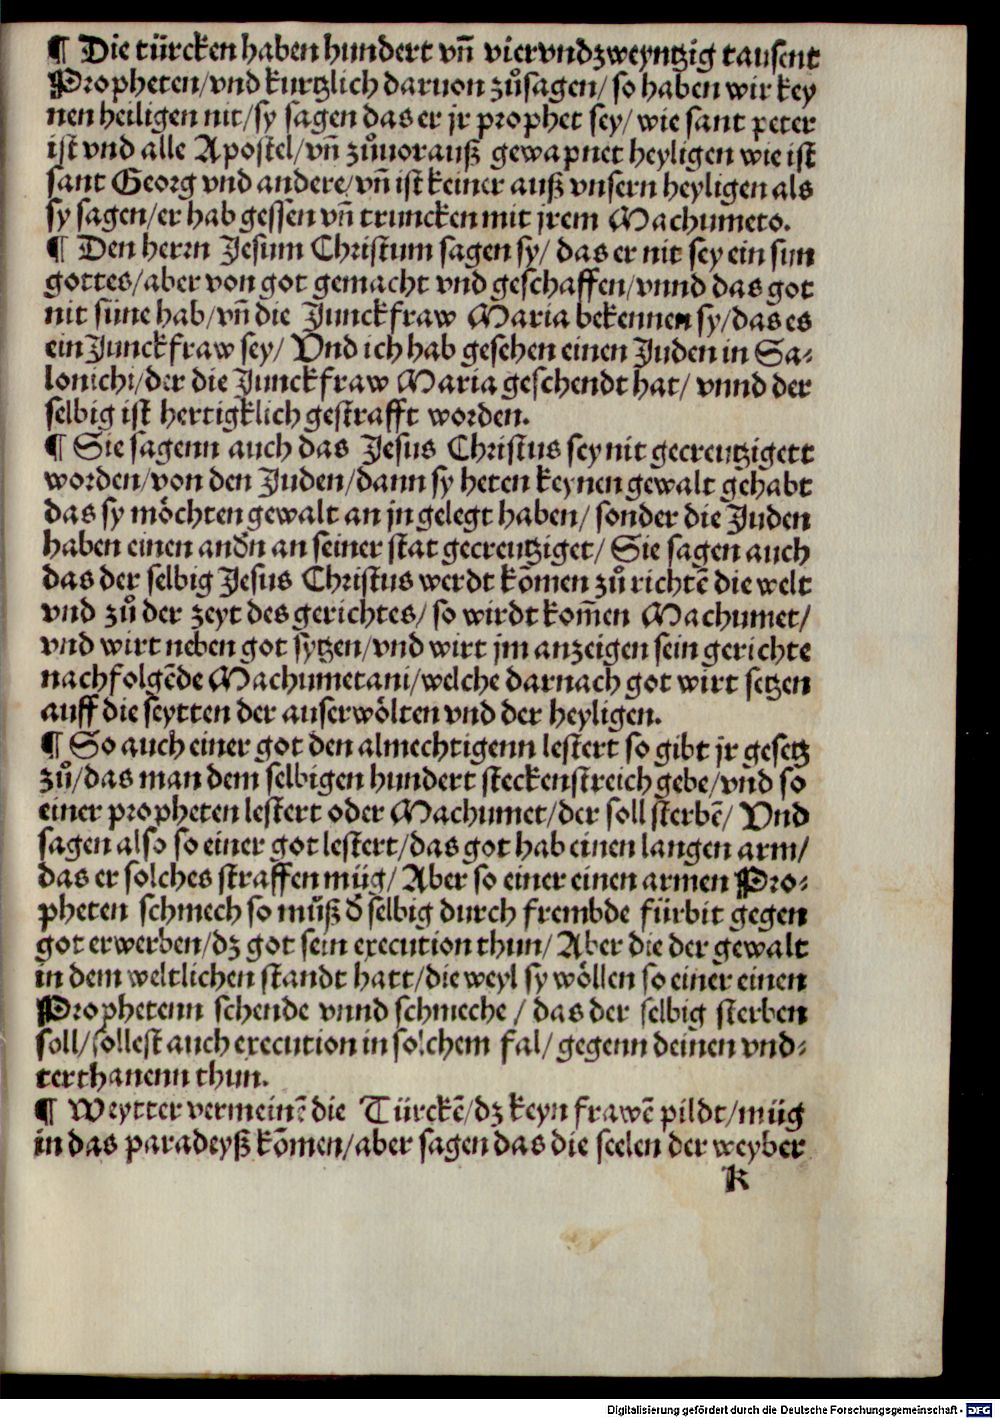 ¶ Die türcken haben hundert vn̄ viervndzweyntzig tausent
Propheten/vnd kurtzlich daruon zůsagen/ so haben wir key
nen heiligen nit/sy sagen das er jr prophet sey/ wie sant peter
ist vnd alle Apostel/vn̄ zůuorauß gewapnet heyligen wie ist
sant Georg vnd andere/vn̄ ist keiner auß vnsern heyligen als
sy sagen/er hab gessen vn̄ truncken mit jrem Machumeto.
¶ Den herrn Jesum Christum sagen sy/ das er nit sey ein sun
gottes/aber von got gemacht vnd geschaffen/vnnd das got
nit süne hab/vn̄ die Junckfraw Maria bekennen sy/das es
ein Junckfraw sey/ Vnd ich hab gesehen einen Juden in Sa⸗
lonichi/der die Junckfraw Maria geschendt hat/ vnnd der
selbig ist hertigklich gestrafft worden.
¶ Sie sagenn auch das Jesus Christus sey nit gecreutzigett
worden/von den Juden/dann sy heten keynen gewalt gehabt
das sy möchten gewalt an jn gelegt haben/ sonder die Juden
haben einen andn̄ an seiner stat gecreutziget/ Sie sagen auch
das der selbig Jesus Christus werdt kōmen zů richtē die welt
vnd zů der zeyt des gerichtes/ so wirdt kom̄en Machumet/
vnd wirt neben got sytzen/vnd wirt jm anzeigen sein gerichte
nachfolgēde Machumetani/welche darnach got wirt setzen
auff die seytten der auserwölten vnd der heyligen.
¶ So auch einer got den almechtigenn lestert so gibt jr gesetz
zů/das man dem selbigen hundert steckenstreich gebe/vnd so
einer propheten lestert oder Machumet/der soll sterbē/ Vnd
sagen also so einer got lestert/das got hab einen langen arm/
das er solches straffen müg/ Aber so einer einen armen Pro⸗
pheten schmech so můß d̄ selbig durch frembde fürbit gegen
got erwerben/dz got sein execution thun/ Aber die der gewalt
in dem weltlichen standt hatt/die weyl sy wöllen so einer einen
Prophetenn schende vnnd schmeche / das der selbig sterben
soll/sollest auch execution in solchem fal/ gegenn deinen vnd⸗
terthanenn thun.
¶ Weytter vermeinē die Türckē/dz keyn frawē pildt/müg
in das paradeyß kōmen/aber sagen das die seelen der weyber
K
Digitalisierung gefördert durch die Deutsche Forschungsgemeinschaft - DFG